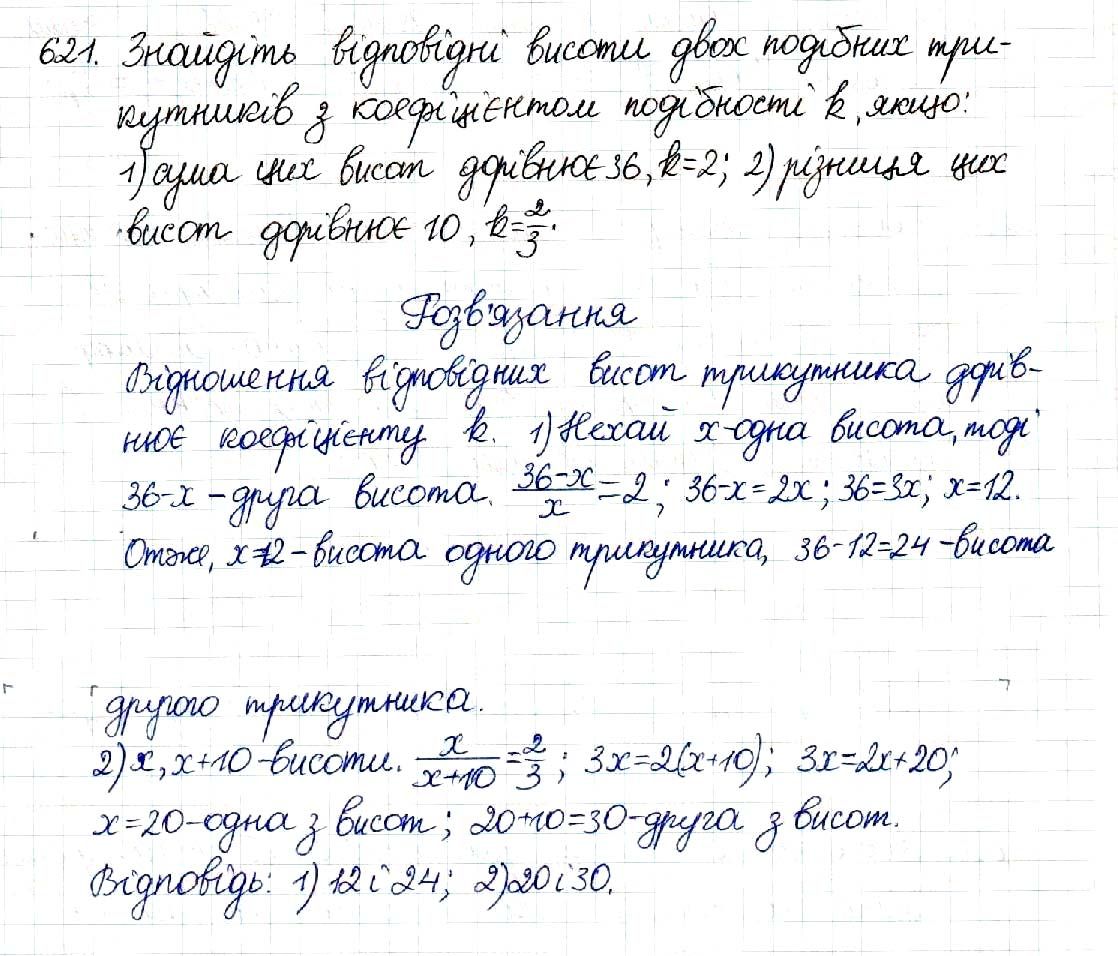 621. Знайдіть відповідні висоти двох подібних три-
кутників з коефіцієнтом подібності k, якщо:
1) сума цих висот дорівнює 36, k=2; 2) різниця цих
висот дорівнює 10, k=2/3.
Розв'язання
Відношення відповідних висот трикутника дорів-
нює коефіцієнту k. 1) Нехай x-одна висота, тоді
36-x – друга висота. (36-x)/x=2; 36-x=2x; 36=3x; x=12.
Отже, x=12 – висота одного трикутника, 36-12=24 -висота
другого трикутника.
2) x, x+10 -висоти. x/(x+10)=2/3; 3x=2(x+10); 3x=2x+20;
x=20-одна з висот; 20+10=30-друга з висот.
Відповідь: 1) 12 і 24; 2) 20 і 30.